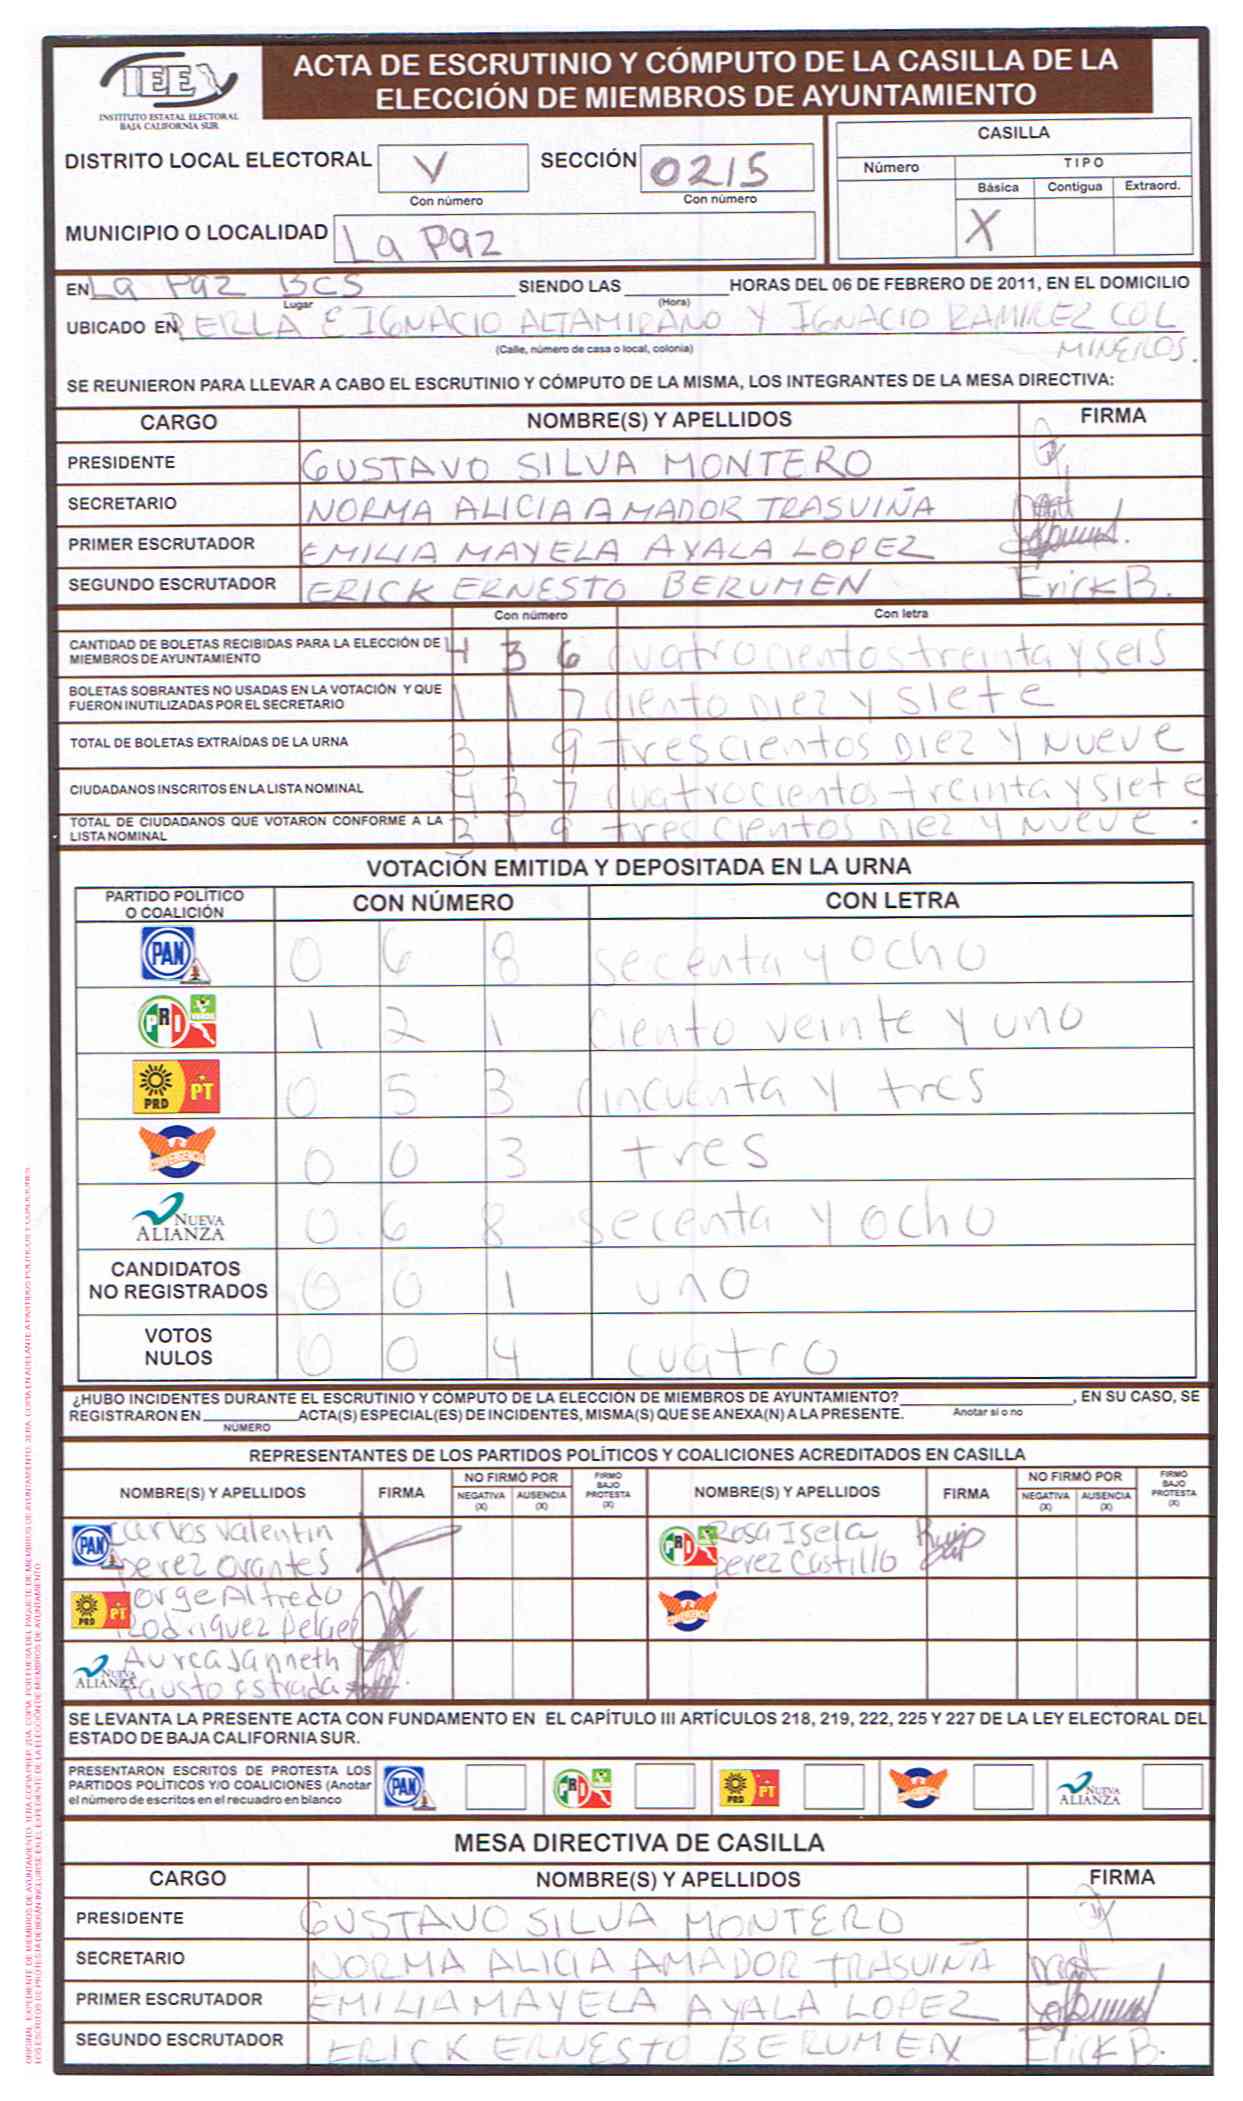 IEE
INSTITUTO ESTATAL ELECTORAL
BAJA CALIFORNIA SUR
ACTA DE ESCRUTINIO Y CÓMPUTO DE LA CASILLA DE LA
ELECCIÓN DE MIEMBROS DE AYUNTAMIENTO
DISTRITO LOCAL ELECTORAL V SECCIÓN 0215
Con número Con número
MUNICIPIO O LOCALIDAD La Paz
CASILLA
Número TIPO
Básica Contigua Extraord.
X
EN La Paz BCS SIENDO LAS HORAS DEL 06 DE FEBRERO DE 2011, EN EL DOMICILIO
Lugar (Hora)
UBICADO EN PERLA E IGNACIO ALTAMIRANO Y IGNACIO RAMIREZ COL
(Calle, número de casa o local, colonia) MINEROS.
SE REUNIERON PARA LLEVAR A CABO EL ESCRUTINIO Y CÓMPUTO DE LA MISMA, LOS INTEGRANTES DE LA MESA DIRECTIVA:
CARGO NOMBRE(S) Y APELLIDOS FIRMA
PRESIDENTE GUSTAVO SILVA MONTERO
SECRETARIO NORMA ALICIA AMADOR TRASUIÑA
PRIMER ESCRUTADOR EMILIA MAYELA AYALA LOPEZ
SEGUNDO ESCRUTADOR ERICK ERNESTO BERUMEN Erick B.
Con número Con letra
CANTIDAD DE BOLETAS RECIBIDAS PARA LA ELECCIÓN DE
MIEMBROS DE AYUNTAMIENTO 4 3 6 cuatrocientos treinta y seis
BOLETAS SOBRANTES NO USADAS EN LA VOTACIÓN Y QUE
FUERON INUTILIZADAS POR EL SECRETARIO 1 1 7 ciento Diez y siete
TOTAL DE BOLETAS EXTRAÍDAS DE LA URNA 3 1 9 trescientos Diez y Nueve
CIUDADANOS INSCRITOS EN LA LISTA NOMINAL 4 3 7 cuatrocientos treinta y siete
TOTAL DE CIUDADANOS QUE VOTARON CONFORME A LA
LISTA NOMINAL 3 1 9 trescientos Diez y Nueve.
VOTACIÓN EMITIDA Y DEPOSITADA EN LA URNA
PARTIDO POLÍTICO
O COALICIÓN CON NÚMERO CON LETRA
PAN 0 6 8 secenta y ocho
PRI VERDE 1 2 1 ciento veinte y uno
PRD PT 0 5 3 cincuenta y tres
CONVERGENCIA 0 0 3 tres
NUEVA ALIANZA 0 6 8 secenta y ocho
CANDIDATOS
NO REGISTRADOS 0 0 1 uno
VOTOS
NULOS 0 0 4 cuatro
¿HUBO INCIDENTES DURANTE EL ESCRUTINIO Y CÓMPUTO DE LA ELECCIÓN DE MIEMBROS DE AYUNTAMIENTO? , EN SU CASO, SE
REGISTRARON EN ACTA(S) ESPECIAL(ES) DE INCIDENTES, MISMA(S) QUE SE ANEXA(N) A LA PRESENTE. Anotar si o no
NÚMERO
REPRESENTANTES DE LOS PARTIDOS POLÍTICOS Y COALICIONES ACREDITADOS EN CASILLA
NOMBRE(S) Y APELLIDOS FIRMA NO FIRMÓ POR NEGATIVA (X) AUSENCIA (X) FIRMÓ BAJO PROTESTA (X) NOMBRE(S) Y APELLIDOS FIRMA NO FIRMÓ POR NEGATIVA (X) AUSENCIA (X) FIRMÓ BAJO PROTESTA (X)
PAN Carlos Valentin PRI Rosa Isela
perez Orantes perez Castillo
PRD PT Jorge Alfredo CONVERGENCIA
Rodriguez
NUEVA ALIANZA Aurea Janneth
Fausto Estrada
SE LEVANTA LA PRESENTE ACTA CON FUNDAMENTO EN EL CAPÍTULO III ARTÍCULOS 218, 219, 222, 225 Y 227 DE LA LEY ELECTORAL DEL
ESTADO DE BAJA CALIFORNIA SUR.
PRESENTARON ESCRITOS DE PROTESTA LOS
PARTIDOS POLÍTICOS Y/O COALICIONES (Anotar
el número de escritos en el recuadro en blanco PAN PRI PRD PT NUEVA ALIANZA
MESA DIRECTIVA DE CASILLA
CARGO NOMBRE(S) Y APELLIDOS FIRMA
PRESIDENTE GUSTAVO SILVA MONTERO
SECRETARIO NORMA ALICIA AMADOR TRASUIÑA
PRIMER ESCRUTADOR EMILIA MAYELA AYALA LOPEZ
SEGUNDO ESCRUTADOR ERICK ERNESTO BERUMEN Erick B.